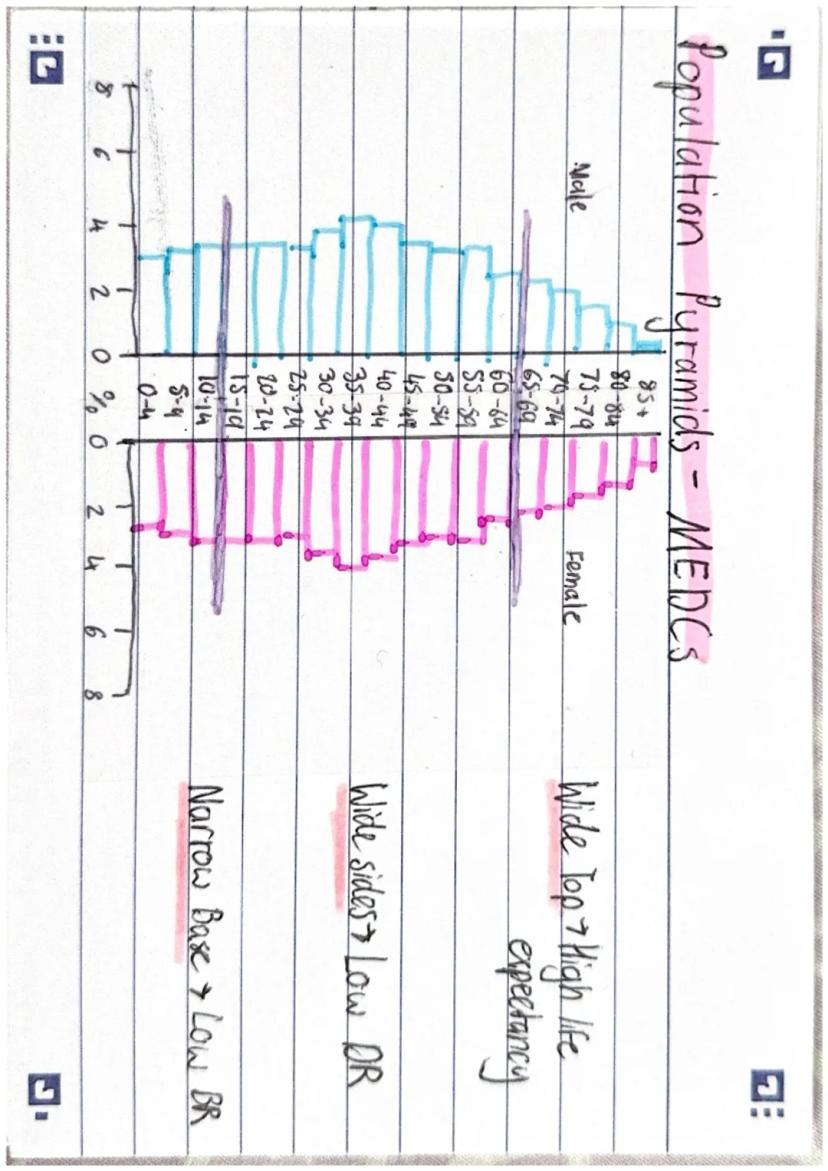 Population Pyramids - MEDCs
Male
Female
85+
80-84
75-79
70-74
65-69
60-64
55-59
50-54
45-49
40-44
35-39
30-34
25-29
20-24
15-19
10-14
5-9
0-4
8 6 4 2 0 % 0 2 4 6 8
Wide Top → High life
expectancy
Wide sides → Low DR
Narrow Base → Low BR